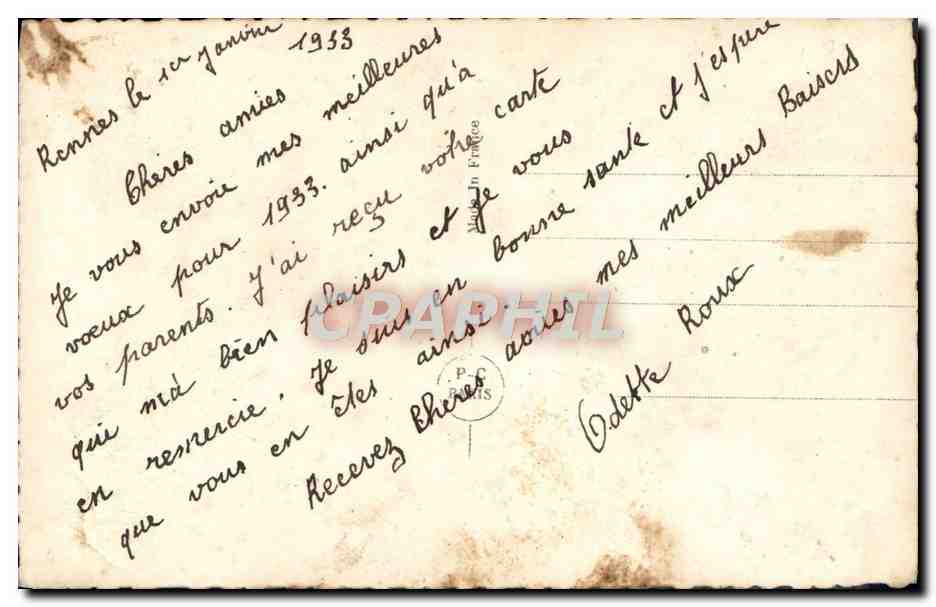 Rennes le 1er Janvier 1933
Chères amies
Je vous envoie mes meilleures
vœux pour 1933. ainsi qu'à
vos parents. J'ai reçu votre carte
qui m'à bien plaisirs et je vous
en remercie. Je suis en bonne santé et j'espère
que vous en êtes ainsi
Recevez Chères amies mes meilleurs Baisers
Odette Roux
Made In France
P-C
PARIS
CPAPHIL